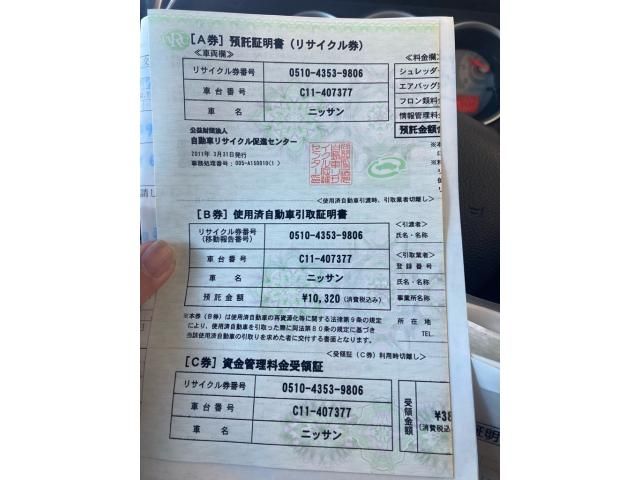 [A券] 預託証明書(リサイクル券)
≪車両欄≫
≪料金欄≫
リサイクル券番号 0510-4353-9806
シュレッダー
車台番号 C11-407377
エアバッグ
車名 ニッサン
フロン類料
情報管理料
公益財団法人
預託金額合
自動車リサイクル促進センター
2011年 3月31日発行
事務処理番号:005-A150010(1)
<使用済自動車引渡時、引取業者切離し>
[B券] 使用済自動車引取証明書
リサイクル券番号
(移動報告番号) 0510-4353-9806
<引渡者>
氏名・名称
車台番号 C11-407377
<引取業者>
登録番号
車名 ニッサン
氏名・名称
預託金額 ¥10,320 (消費税込み)
事業所名称
※本券(B券)は使用済自動車の再資源化等に関する法律第9条の規定
により、使用済自動車を引取った際に同法第80条の規定に基づき
当該使用済自動車の引取りを求めた者に交付する書面となります。
所在地
TEL.
<受領証(C券)利用時切離し>
[C券] 資金管理料金受領証
リサイクル券番号 0510-4353-9806
車台番号 C11-407377
車名 ニッサン
受領金額
¥38
(消費税込